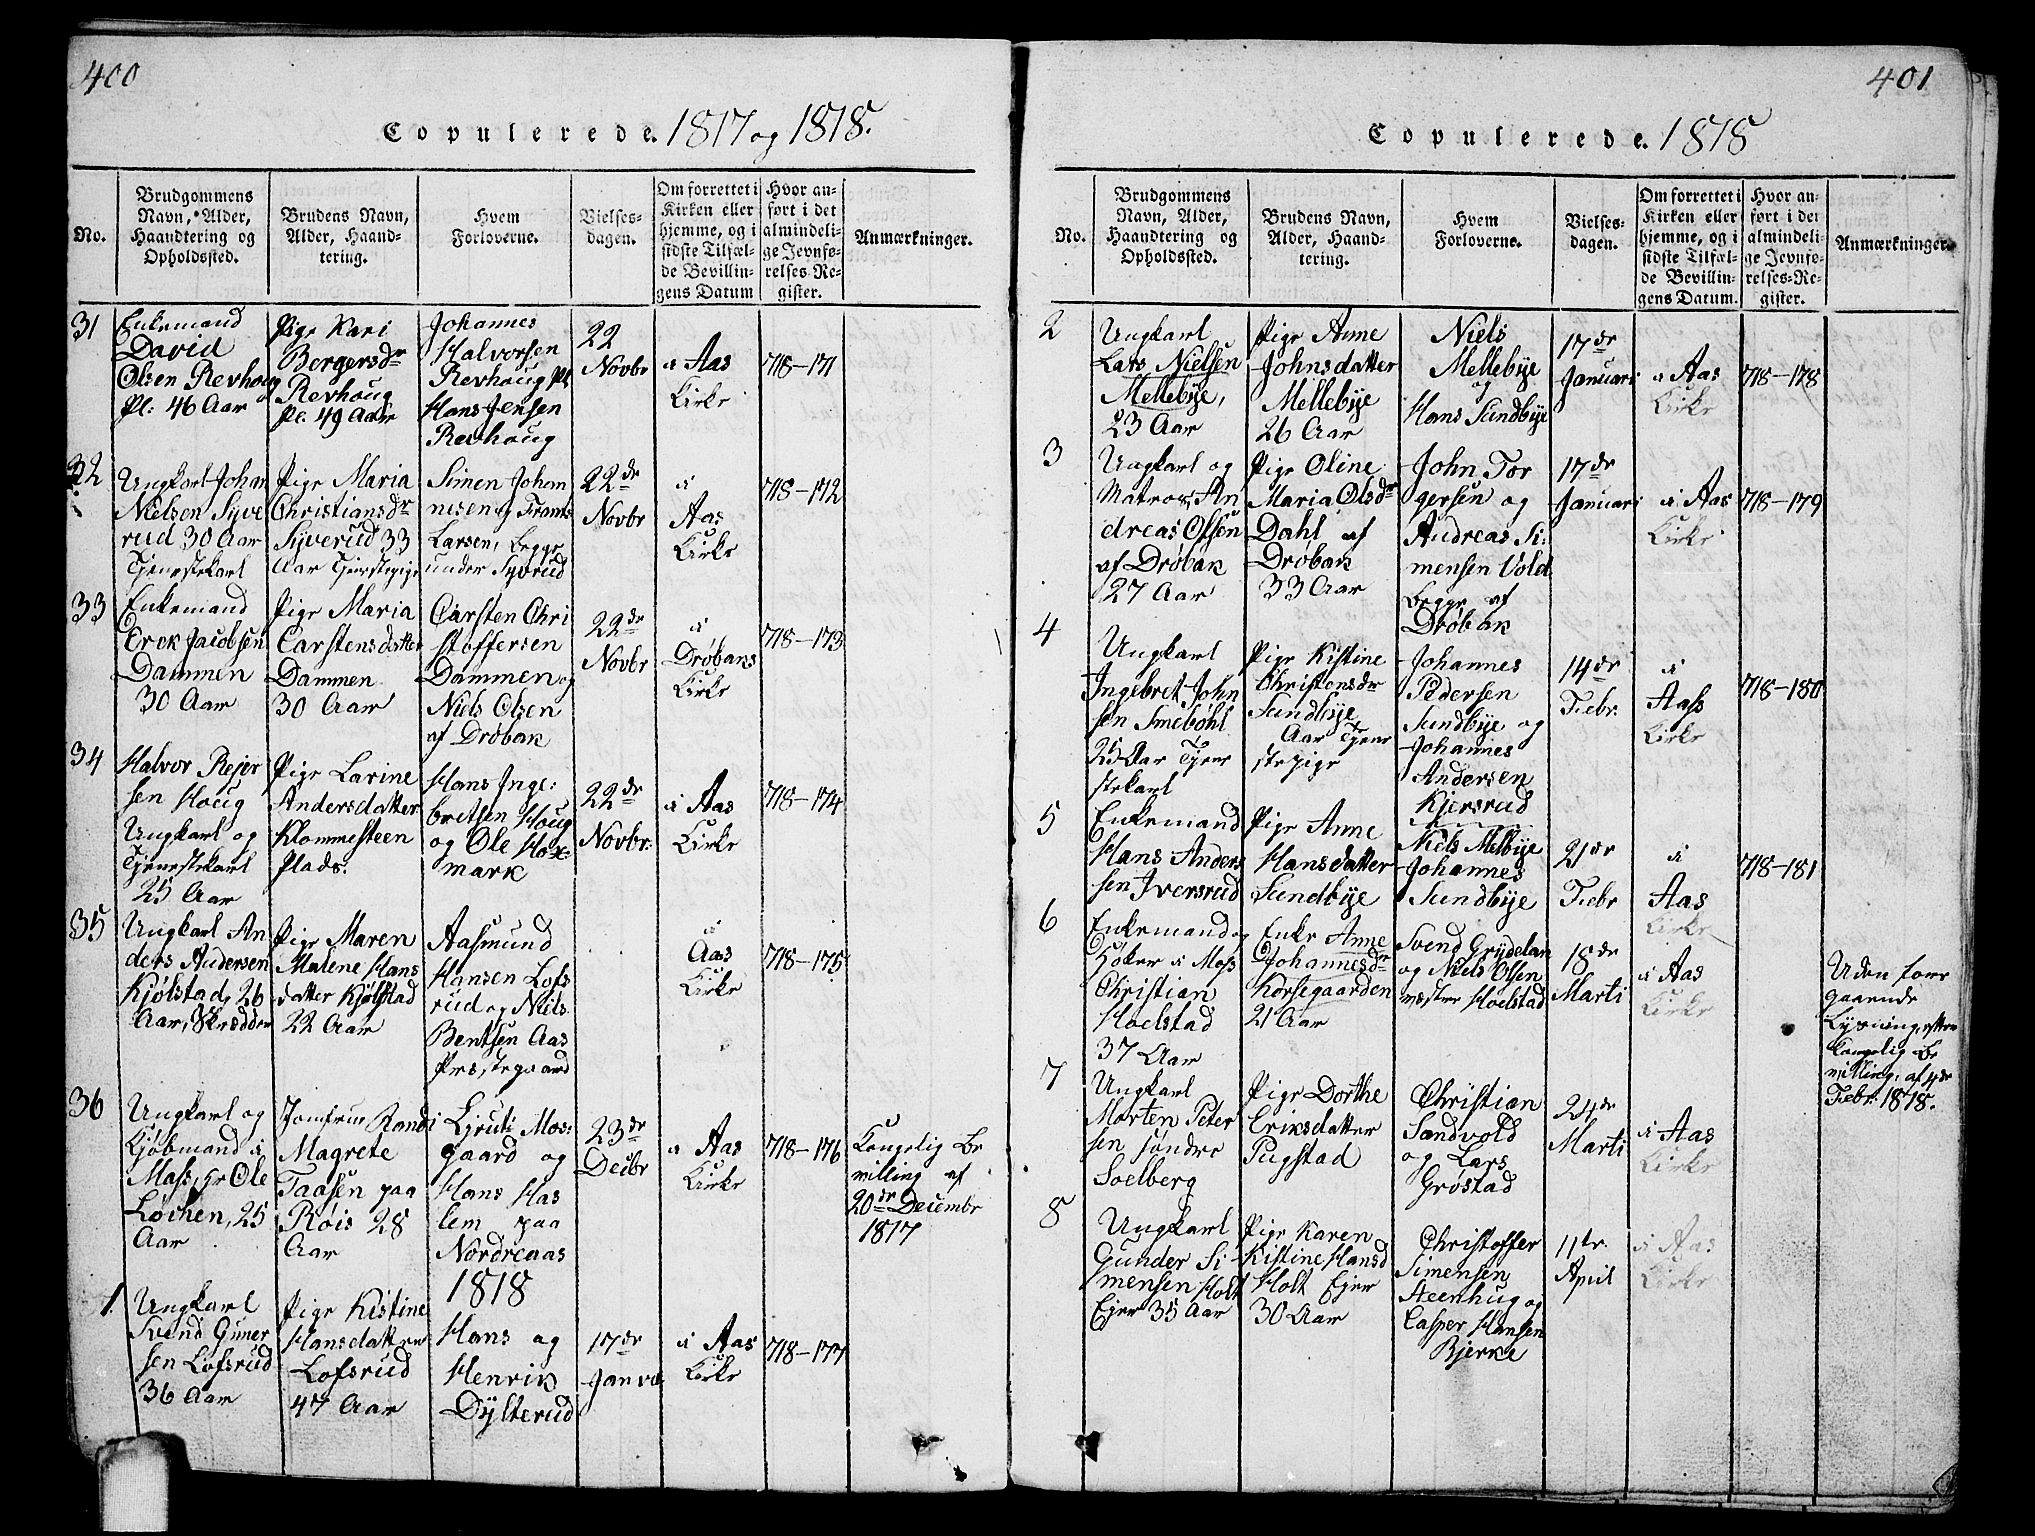 400
Copulerede. 1817 og 1818.
No.
Brudgommens
Navn, Alder,
Haandtering og
Opholdssted.
Brudens Navn,
Alder, Haand-
tering.
Hvem
Forloverne.
Vielses-
dagen.
Om forrettet i
Kirken eller
hjemme, og i
sidste Tilfæl-
de Bevillin-
gens Datum
Hvor an-
ført i det
almindeli-
ge Jevnfø-
relses-Re-
gister.
Anmærkninger.
31
Enkemand
David
Olsen Revhoug
Pl: 46 Aar
Pige Kari
Bergersdr
Revhoug
Pl. 49 Aar
Johannes
Halvorsen
Revhoug Pl
Hans Jensen
Revhoug
22
Novbr
i Aas
Kirke
718-171
32
Ungkarl Johan
Nielsen Syve
rud 30 Aar
Tjenestekarl
Pige Maria
Christiansdr
Syverud 33
Aar Tjenstepige
Simen Johan
nesen og Frants
Larsen, begge
under Syverud
22de
Novbr
i
Aas
Kirke
718-172
33
Enkemand
Erek Jacobsen
Dammen
30 Aar
Pige Maria
Carstensdatter
Dammen
30 Aar
Carsten Chri
stoffersen
Dammen og
Niels Olsen
af Drøbak
22de
Novbr
i
Drøbaks
Kirke
718-173
34
Halvor Rejer
sen Houg
Ungkarl og
Tjenestekarl
25 Aar
Pige Larine
Andersdatter
Klommesteen
Plads.
Hans Inge:
bretsen Houg
og Ole Hox-
mark
22de
Novbr:
i Aas
Kirke
718-174
35
Ungkarl An
ders Andersen
Kjølstad, 26
Aar, Skrædder
Pige Maren
Malene Hans
datter Kjølstad
22 Aar
Aasmund
Hansen Lofs
rud og Niels
Bentsen Aas
Præstegaard
i
Aas
Kirke
718-175
36
Ungkarl og
Kjøbmand i
Moss, Hr Ole
Løchen, 25
Aar
Jomfrue Randi
Magrete
Taasen paa
Röis 28
Aar
Ljruti Mos:
gaard og
Hans Has
lem paa
Nordreaas
23de
Decbr
i Aas
Kirke
718-176
Kongelig Be
villing af
20de Decembr
1817
1818
1.
Ungkarl
Svend Guner
sen Lofsrud
36 Aar
Pige Kistine
Hansdatter
Lofsrud
47 Aar
Hans og
Henrik
Dylterud
17de
Janva
i Aas
Kirke
718-177
401
Copulerede. 1818
No.
Brudgommens
Navn, Alder,
Haandtering og
Opholdssted.
Brudens Navn,
Alder, Haand-
tering.
Hvem
Forloverne.
Vielses-
dagen.
Om forrettet i
Kirken eller
hjemme, og i
sidste Tilfæl-
de Bevillin-
gens Datum.
Hvor an-
ført i det
almindeli-
ge Jevnfø-
relses-Re-
gister.
Anmærkninger.
2
Ungkarl
Lars Nielsen
Mellebye,
23 Aar
Pige Anne
Johnsdatter
Mellebye
26 Aar
Niels
Mellebye
og
Hans Sundbye
17de
Januari
i Aas
Kirke
718-178
3
Ungkarl og
Matros, An
dreas Olsen
af Drøbak
27 Aar
Pige Oline
Maria Olsdr
Dahl af
Drøbak
33 Aar
John Tor
gersen og
Andreas Si:
mensen Vold
begge af
Drøbak
17de
Januari
i Aas
Kirke
718-179
4
Ungkarl
Ingebret John
sen Smebøhl
25 Aar Tjene
stekarl
Pige Kistine
Christensdr
Sundbye
Aar Tjene
stepige
Johannes
Pedersen
Sundbye og
Johannes
Andersen
Kjersrud
14de
Febr.
i
Aass
Kirke
718-180
5
Enkemand
Hans Anders
sen Iversrud
Pige Anne
Hansdatter
Sundbye
Niels Melbye
Johannes
Sundbye
21de
Febr
i
Aas
Kirke
718-181
6
Enkemand og
Høker i Moss
Christian
Hoelstad
37 Aar
Enke Anne
Johannesdr
Korsegaarden
21 Aar
Svend Grydeland
og Niels Olsen
Hoelstad
18de
Marti
i Aas
Kirke
Uden fore
gaaende
Lysning, efter
Kongelig Be
villing, af 4de
Febr: 1818.
7
Ungkarl
Morten Peter
sen søndre
Soelberg
Pige Dorthe
Eriksdatter
Pugstad
Christian
Sandvold
og Lars
Grøstad
24de
Marti
i Aas
Kirke
8
Ungkarl
Gunder Si-
mensen Holt
Ejer 35 Aar
Pige Karen
Kistine Hansd
Holt Ejer
30 Aar
Christoffer
Simensen
Steenhug og
Casper Hansen
Bjerke
11te
April
i Aas
Kirke